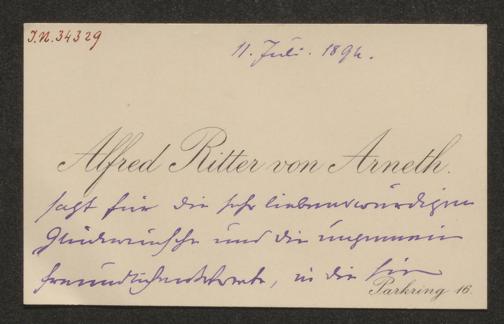 I.N. 34329
11. Juli. 1894.
Alfred Ritter von Arneth.
sagt für die sehr liebenswürdigen
Glückwünsche und die ungemein
freundlichen Worte, in die sie
Parkring 16.